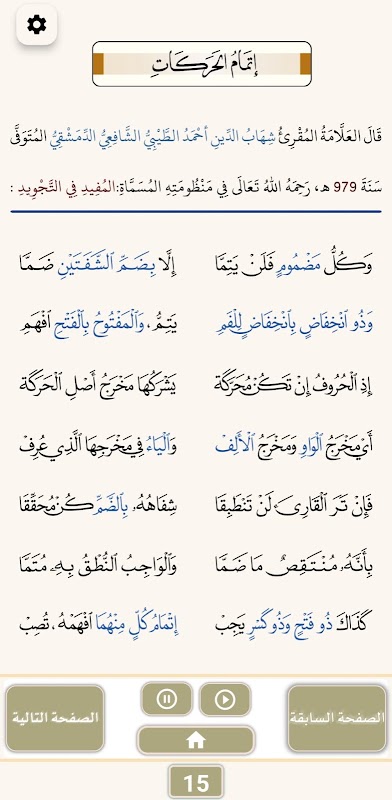 إِتْمَامُ الحَرَكَاتِ
قَالَ العَلَّامَةُ المُقْرِئُ شِهَابُ الدِّينِ أَحْمَدُ الطَّيْبِيُّ الشَّافِعِيُّ الدِّمَشْقِيُّ المُتَوَفَّى
سَنَةَ 979 هـ، رَحِمَهُ اللهُ تَعَالَى فِي مَنْظُومَتِهِ المُسَمَّاةِ:المُفِيدِ فِي التَّجْوِيدِ :
وَكُلُّ مَضْمُومٍ فَلَنْ يَتِمَّا إِلَّا بِضَمِّ الشَّفَتَيْنِ ضَمَّا
وَذُو انْخِفَاضٍ بِانْخِفَاضٍ لِلْفَمِ يَتِمُّ، وَالْمَفْتُوحُ بِالْفَتْحِ افْهَمِ
إِذِ الْحُرُوفُ إِنْ تَكُنْ مُحَرَّكَةْ يَشْرَكُهَا مَخْرَجُ أَصْلِ الْحَرَكَةْ
أَيْ مَخْرَجُ الْوَاوِ وَمَخْرَجُ الْأَلِفْ وَالْيَاءُ فِي مَخْرَجِهَا الَّذِي عُرِفْ
فَإِنْ تَرَ الْقَارِئَ لَنْ تَنْطَبِقَا شِفَاهُهُ بِالضَّمِّ كُنْ مُحَقِّقَا
بِأَنَّهُ مُنْتَقِصٌ مَا ضَمَّا وَالْوَاجِبُ النُّطْقُ بِهِ مُتَمَّا
كَذَاكَ ذُو فَتْحٍ وَذُو كَسْرٍ يَجِبْ إِتْمَامُ كُلٍّ مِنْهُمَا افْهَمْهُ، تُصِبْ
الصفحة السابقة
الصفحة التالية
15